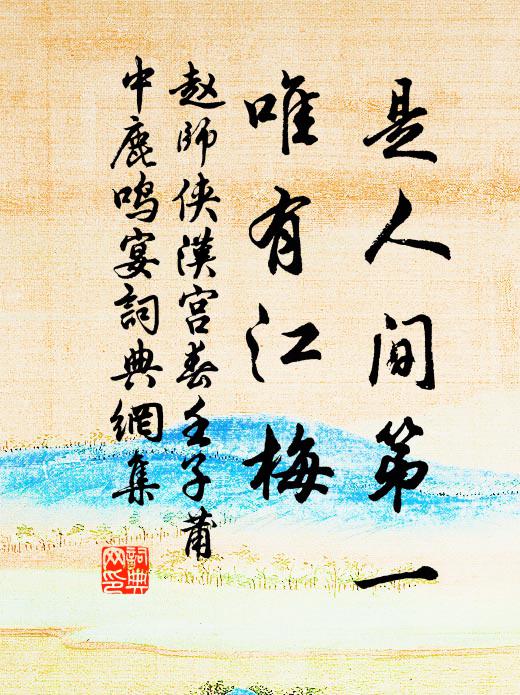 是人间第一
唯有江梅
赵师侠汉宫春壬子莆
中鹿鸣宴词典网集
词典
网印